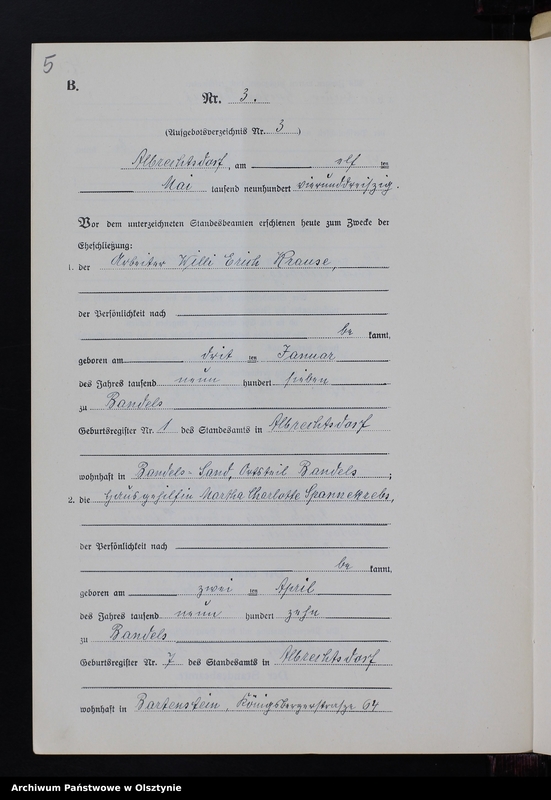 5
B.
Nr. 3.
(Aufgebotsverzeichnis Nr. 3)
Albrechtsdorf, am elf ten
Mai tausend neunhundert vierunddreiszig.
Vor dem unterzeichneten Standesbeamten erschienen heute zum Zwecke der
Eheschließung:
1. der Arbeiter Willi Erich Krause,
der Persönlichkeit nach
be kannt,
geboren am drit ten Januar
des Jahres tausend neun hundert sieben
zu Bandels
Geburtsregister Nr. 1 des Standesamts in Albrechtsdorf
wohnhaft in Bandels-Sand, Ortsteil Bandels;
2. die Hausgehilfin Martha Charlotte Spannekrebs,
der Persönlichkeit nach
be kannt,
geboren am zwei ten April
des Jahres tausend neun hundert zehn
zu Bandels
Geburtsregister Nr. 7 des Standesamts in Albrechtsdorf
wohnhaft in Bartenstein, Königsbergerstrasze 64
Archiwum Państwowe w Olsztynie